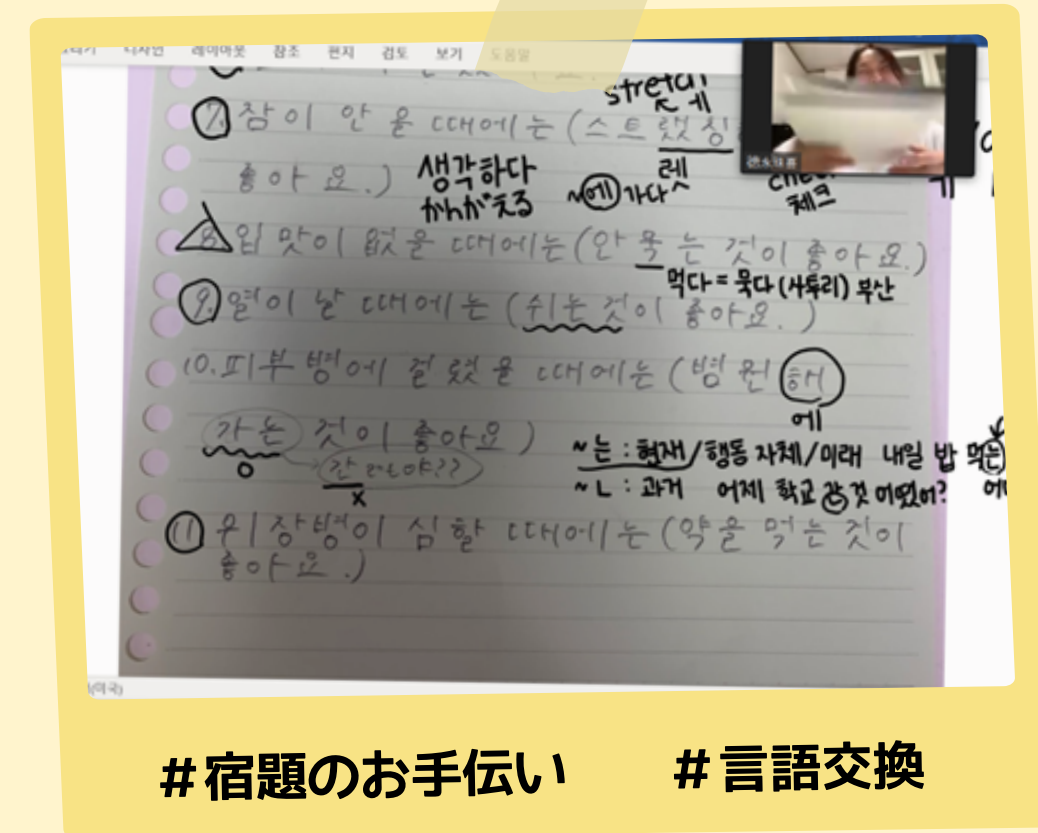 디자인 레이아웃 참조 편지 검토 보기 도움말
stretch
ㅔ
7. 잠이 안 올 때에는 (스트랬칭
좋아요.)
생각하다
かんがえる
~에 가다
레
check
체크
8. 입 맛이 없을 때에는 (안 묵는 것이 좋아요.)
먹다 = 묵다 (사투리) 부산
9. 열이 날 때에는 (쉬는 것이 좋아요.)
10. 피부병에 걸렸을 때에는 (병원 해
에
가는 것이 좋아요)
o
간 でもや??
x
~는 : 현재/행동 자체/미래 내일 밥 먹는
~ㄴ : 과거 어제 학교 간 것 어땠어?
11. 위장병이 심할 때에는 (약을 먹는 것이
좋아요.)
(미국)
#宿題のお手伝い #言語交換